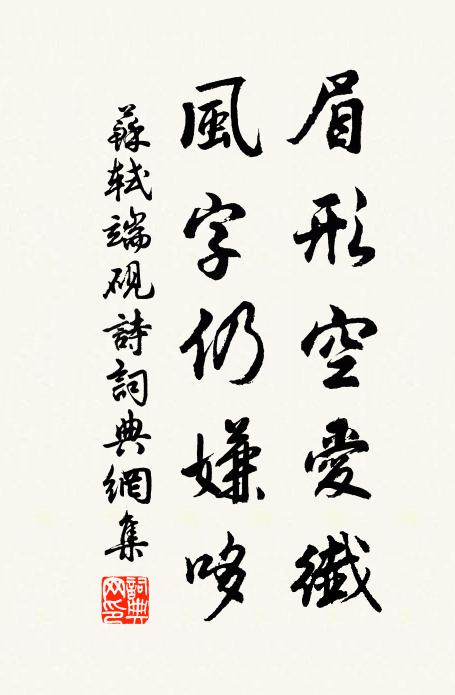 眉形空愛纖
風字仍嫌哆
蘇軾端硯詩詞典網集
詞典网印